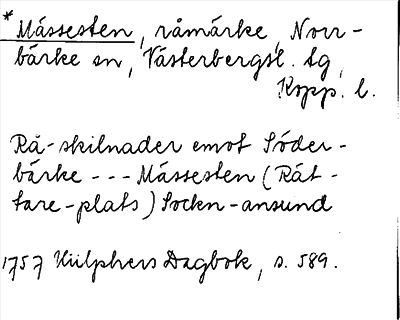 *Mässesten, råmärke, Norr-
bärke sn, Västerbergsl. tg,
Kopp. l.
Rå-skilnader emot Söder-
bärke --- Mässesten (Rät-
tare-plats) Sockn-ansund
1757 Hülphers Dagbok, s. 589.